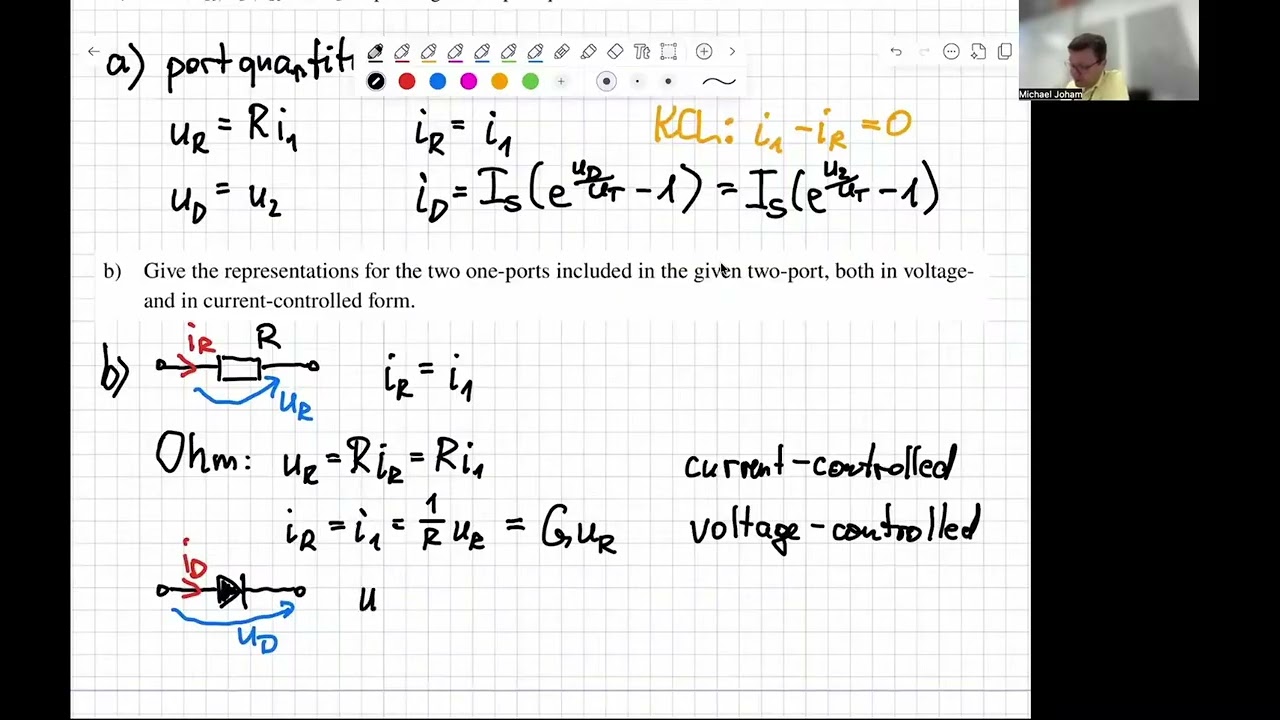 a) port quantiti
u_R = R i_1 i_R = i_1 KCL: i_1 - i_R = 0
u_D = u_2 i_D = I_S (e^{u_D/u_T} - 1) = I_S (e^{u_2/u_T} - 1)
b) Give the representations for the two one-ports included in the given two-port, both in voltage-
and in current-controlled form.
b) i_R R u_R i_R = i_1
Ohm: u_R = R i_R = R i_1 current-controlled
i_R = i_1 = 1/R u_R = G u_R voltage-controlled
i_D u_D u
Tt
Michael Joham